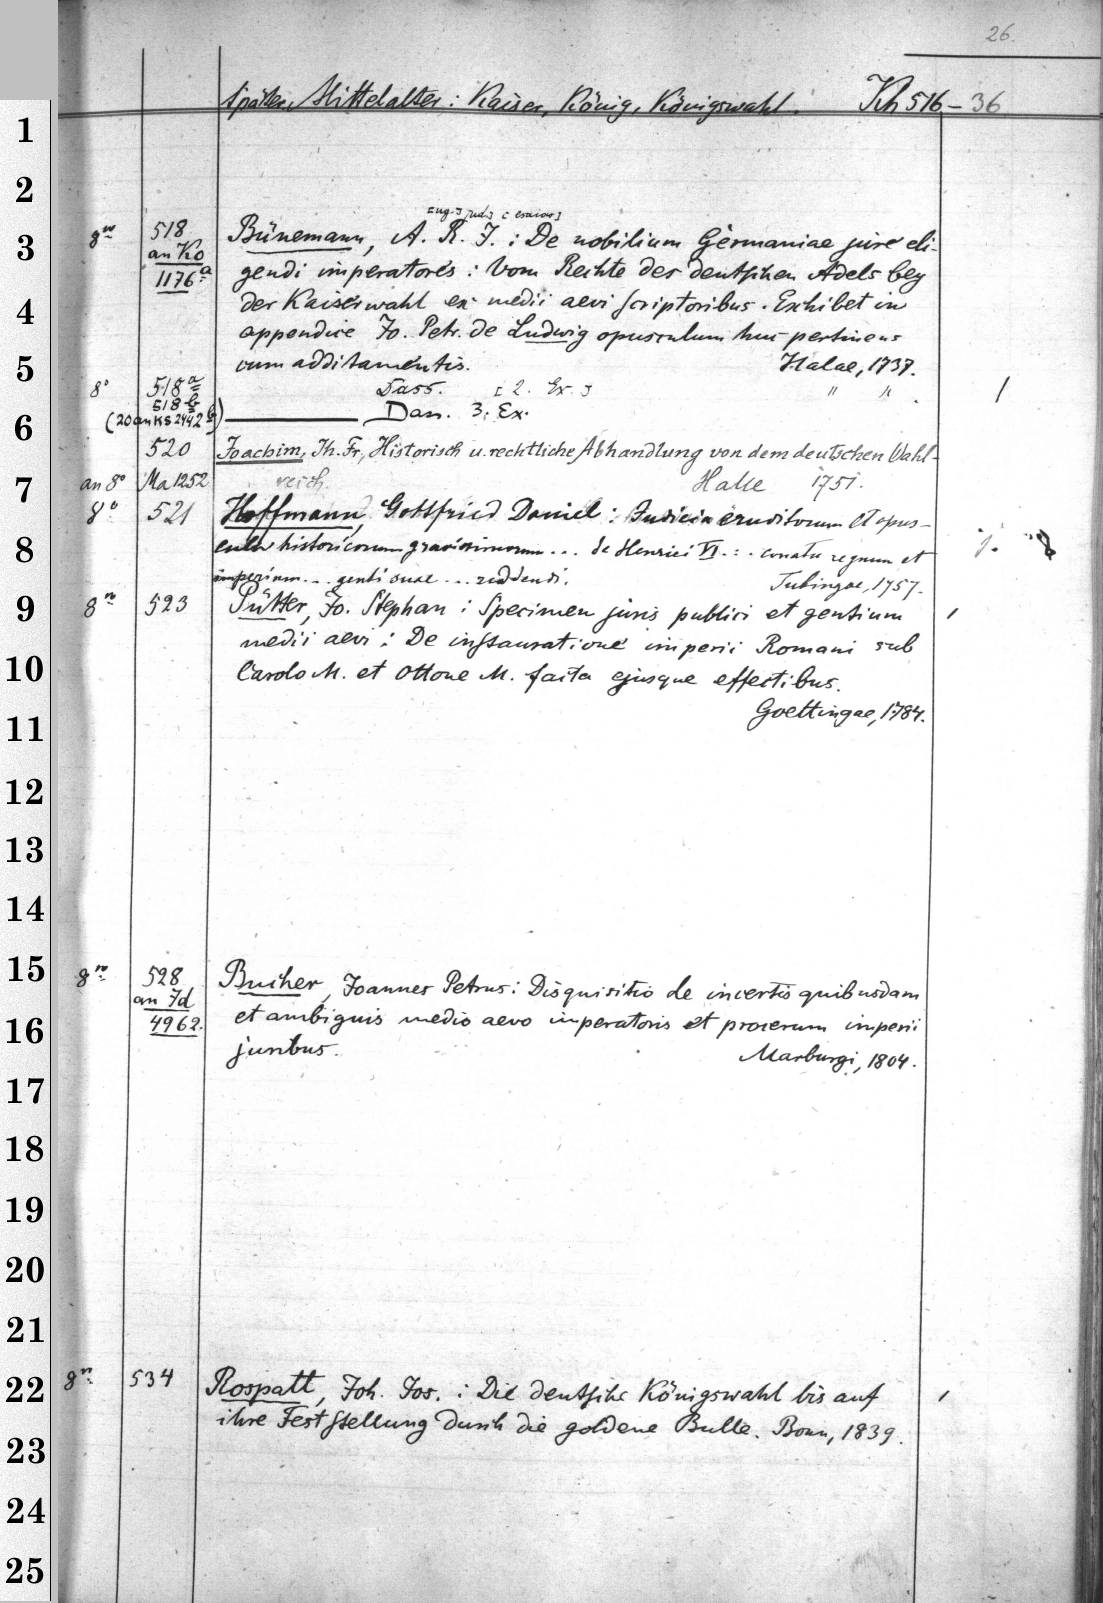 26.
Später. Mittelalter: Kaiser, König, Königswahl. Kh 516 – 36
1
2
3
4
5
6
7
8
9
10
11
12
13
14
15
16
17
18
19
20
21
22
23
24
25
8vo 518 Bünemann, A. R. J.: De nobilium Germaniae jure eli-
an Ko 1176a gendi imperatores: Vom Rechte des deutschen Adels bey
der Kaiserwahl ex medii aevi scriptoribus. Exhibet in
appendice Jo. Petr. de Ludwig opusculum huc pertinens
cum additamentis. Halae, 1737.
8° 518a Dass. [2. Ex.] " "
518b
(20 an KS 2442b) Dass. 3. Ex.
520 Joachim, Jh. Fr., Historisch u. rechtliche Abhandlung von dem deutschen Wahl-
an 8° Ma 1252 reich. Halle 1751.
8° 521 Hoffmann, Gottfried Daniel: Judicia eruditorum et opus-
cula historicorum graviorum ... de Henrici VI ... conatu regnum et
imperium ... genti suae ... reddendi. Tubingae, 1757.
8vo 523 Pütter, Jo. Stephan: Specimen juris publici et gentium
medii aevi: De instauratione imperii Romani sub
Carolo M. et Ottone M. facta ejusque effectibus.
Goettingae, 1784.
8vo 528 Bucher, Joannes Petrus: Disquisitio de incertis quibusdam
an Jd 4962. et ambiguis medio aevo imperatoris et procerum imperii
juribus. Marburgi, 1804.
8vo 534 Rospatt, Joh. Jos.: Die deutsche Königswahl bis auf
ihre Feststellung durch die goldene Bulle. Bonn, 1839.